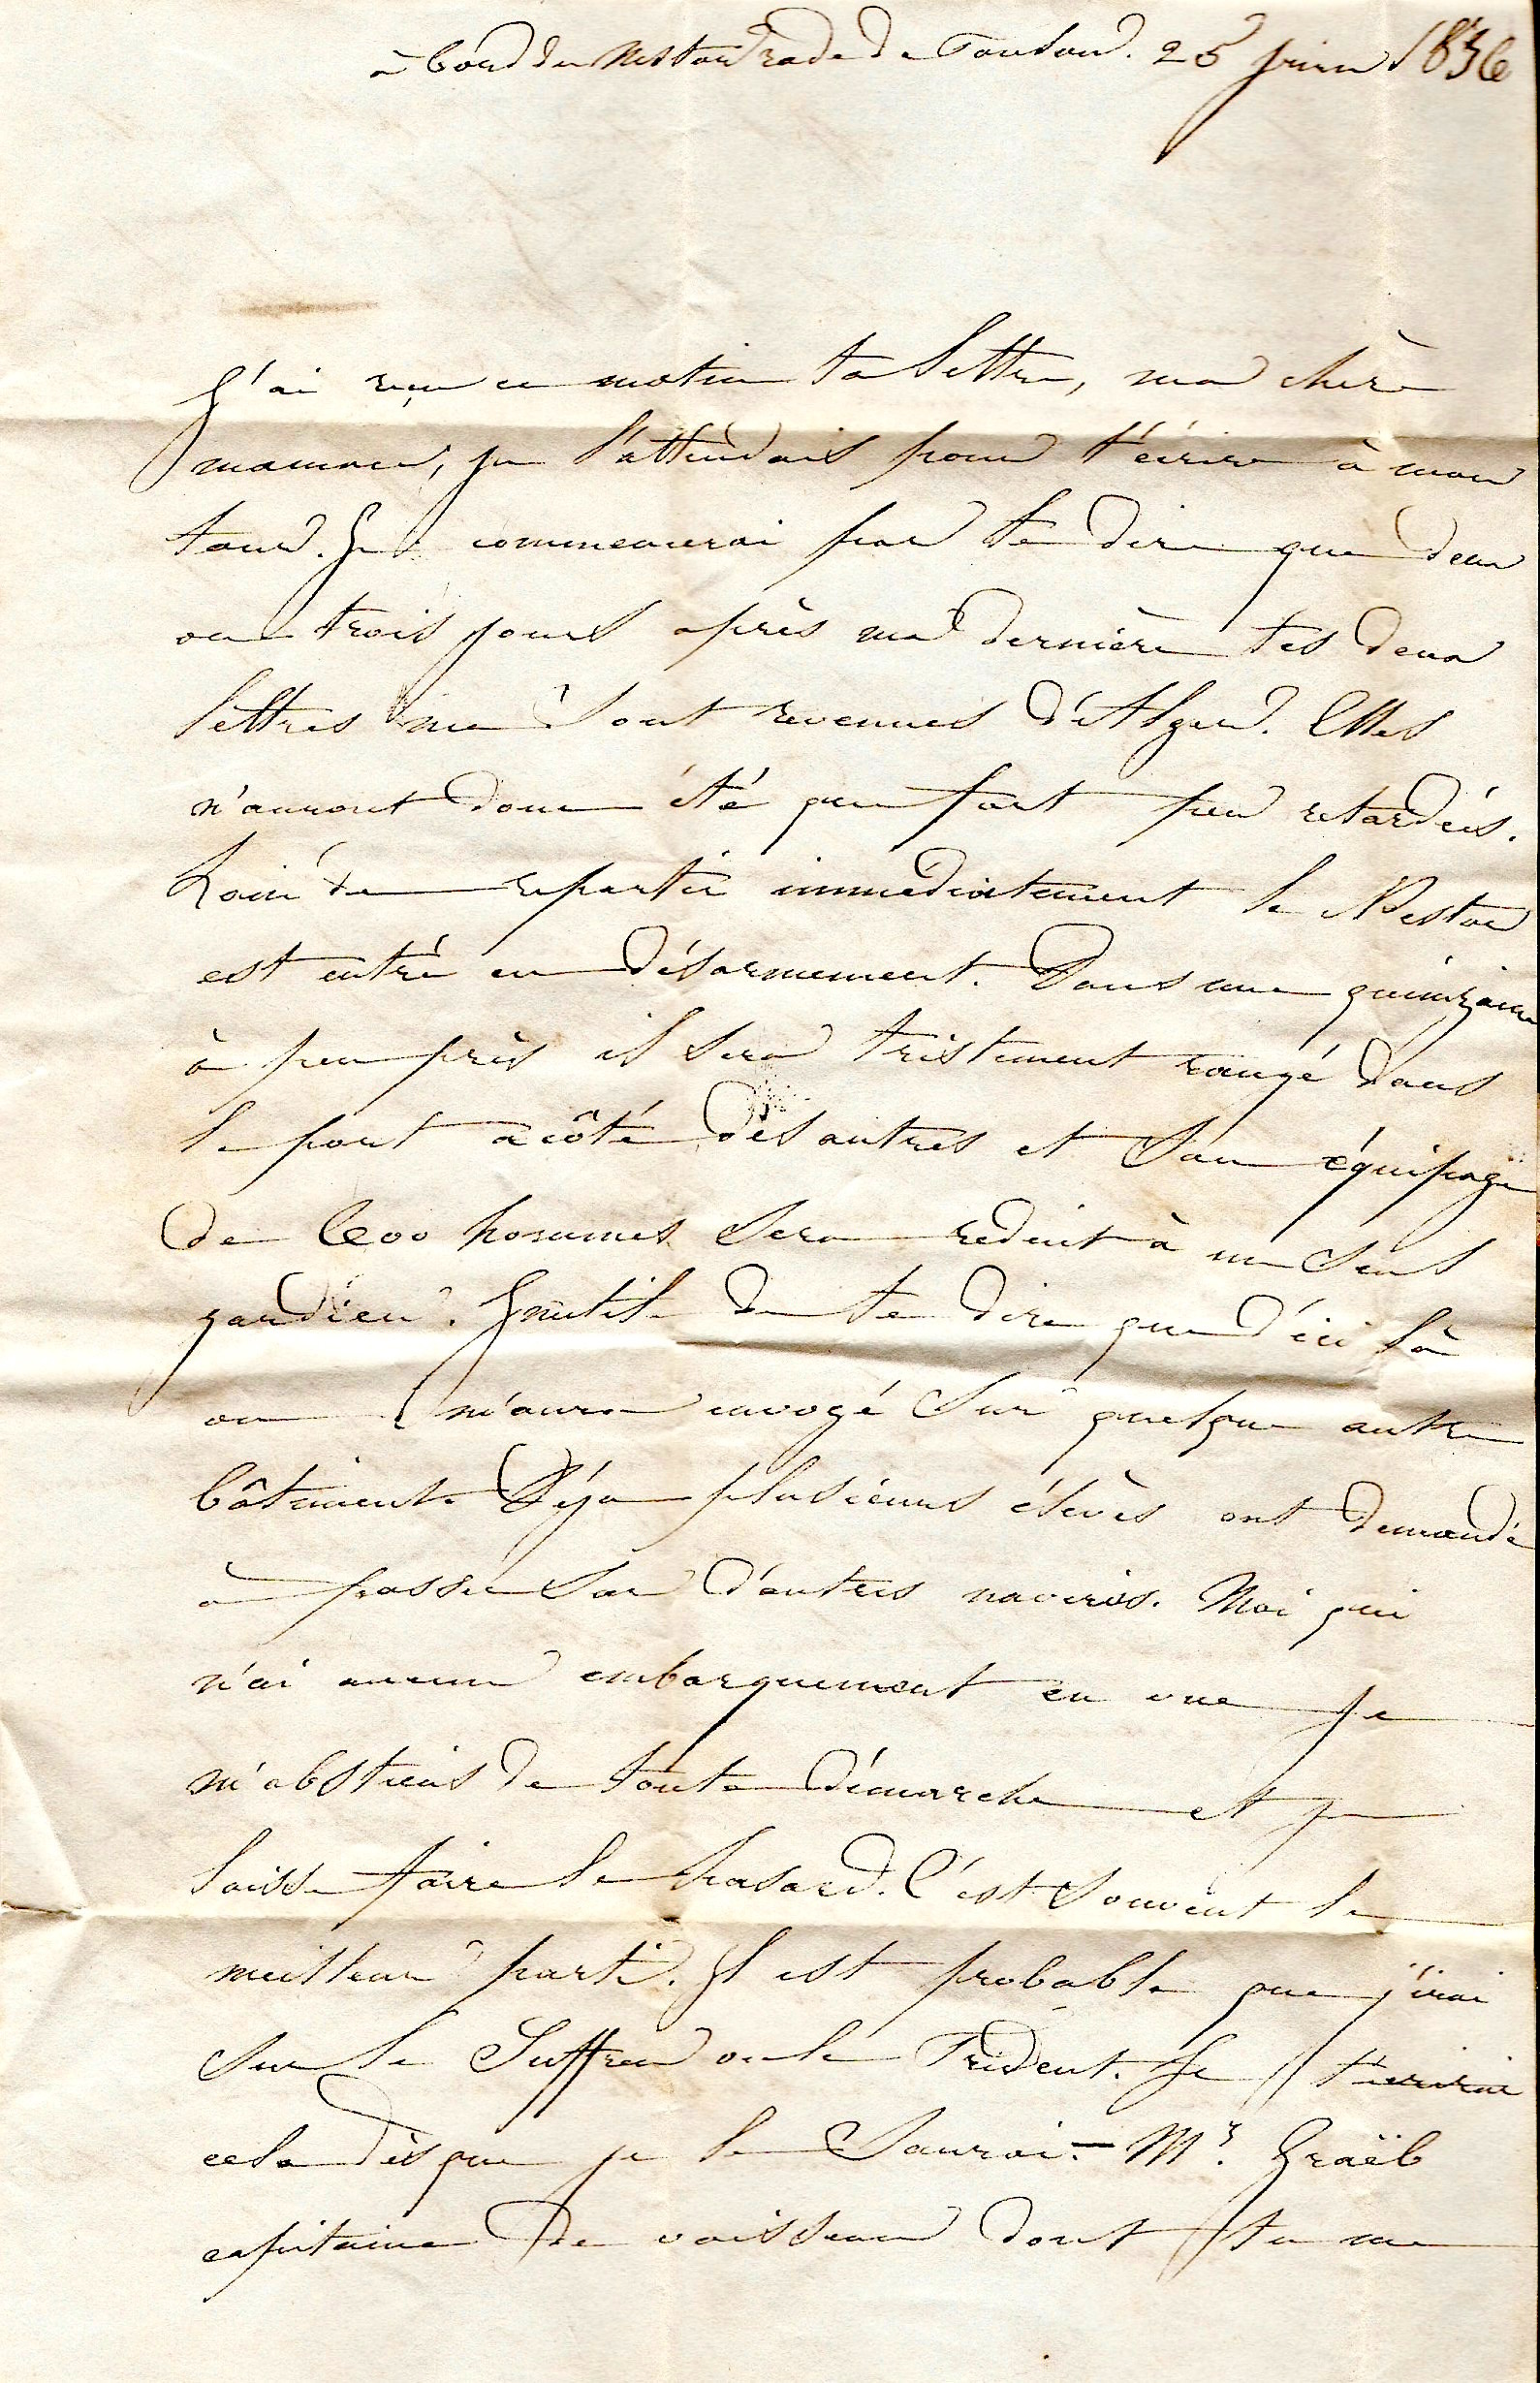 à bord du Nestor rade de Toulon. 25 juin 1836
J'ai reçu ce matin ta lettre, ma chère
maman, je l'attendais pour t'écrire à mon
tour. Je commencerai par te dire que deux
ou trois jours après ma dernière tes deux
lettres me sont revenues d'Alger. Elles
n'auront donc été que fort peu retardées.
Loin de repartir immédiatement le Nestor
est entré en désarmement. Dans une quinzaine
à peu près il sera tristement rangé dans
le port à côté des autres et son équipage
de 600 hommes sera réduit à un seul
gardien. Inutile de te dire que d'ici là
on m'aura envoyé sur quelque autre
bâtiment. Déja plusieurs élèves ont demandé
à passer sur d'autres navires. Moi qui
n'ai aucun embarquement en vue je
m'abstiens de toute démarche et je
laisse faire le hasard. C'est souvent le
meilleur parti. Il est probable que j'irai
sur le Suffren ou le Trident. Je t'écrirai
cela dès que je le saurai. - Mr. Graëb
capitaine de vaisseau dont tu me